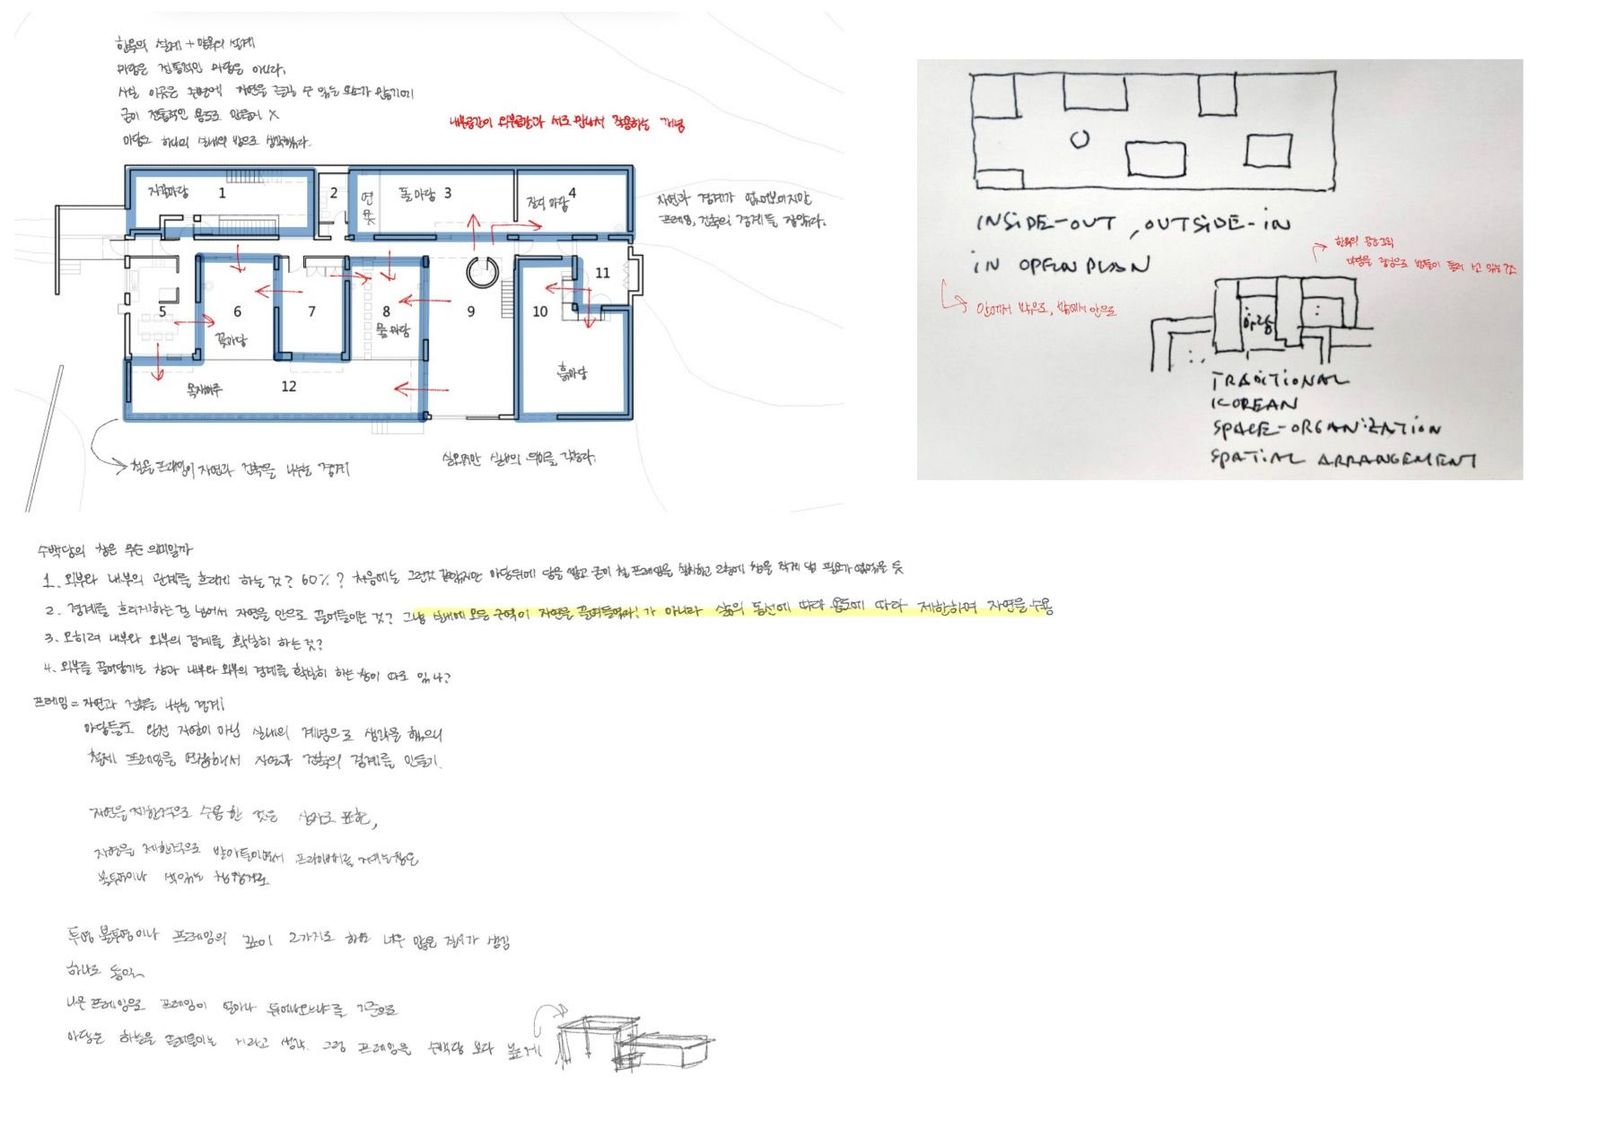 한옥의 설계 + 양옥의 설계
마당은 전통적인 마당은 아니다.
사실 이곳은 주변에 자연을 즐길 수 있는 요소가 많기에
굳이 전통적인 용도로 만들어 X
마당도 하나의 실내의 방으로 생각했다.
내부공간이 외부공간과 서로 만나서 작용하는 개념
1
2
연못
돌마당 3
잔디마당 4
자연과 경계가 없어보이지만
프레임, 건축의 경계를 잡았다.
5
6
꽃마당
7
8
물마당
9
10
11
흙마당
12
철골 프레임이 자연과 건축을 나누는 경계
실외지만 실내의
INSIDE-OUT, OUTSIDE-IN
IN OPEN PLAN
안에서 밖으로, 밖에서 안으로
한옥의 공간구조
마당을 중심으로 방들이 둘러
마당
TRADITIONAL
KOREAN
SPACE-ORGANIZATION
SPATIAL ARRANGEMENT
수백당의 창은 무슨 의미일까
1. 외부와 내부의 관계를 흐리게 하는 것? 60%? 처음에는 그런것 같았지만 마당뒤에 담을 쌓고 굳이 철 프레임을 설치하고 2층에 창을 작게 낼 필요가 없었을 듯
2. 경계를 흐리게하는걸 넘어서 자연을 안으로 끌어들이는 것? 그냥 실내에 모든 구역이 자연을 끌어들였다!가 아니라 삶의 동선에 따라 용도에 따라 제한하며 자연을 수용
3. 오히려 내부와 외부의 경계를 확실히 하는 것?
4. 외부를 끌어당기는 창과 내부와 외부의 경계를 확실히 하는 창이 따로 있나?
프레임 = 자연과 건축을 나누는 경계
마당들도 완전 자연이 아닌 실내의 개념으로 생각을 했으니
철제 프레임을 연장해서 자연과 건축의 경계를 만들기.
자연을 제한적으로 수용한 것은 상자로 표현,
자연을 제한적으로 받아들이면서
불투명이나
투명 불투명이나 프레임의 깊이 2가지로 하면 너무 많은 질서가 생김
하나로 통일
나무 프레임으로 프레임이 얼마나 튀어나오느냐를 기준으로
마당은 하늘을 끌어들이는 거라고 생각. 그럼 프레임을 수백당 보다 높게